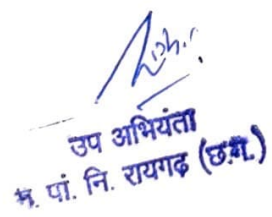 उप अभियंता
न. पां. नि. रायगढ़ (छ.ग.)